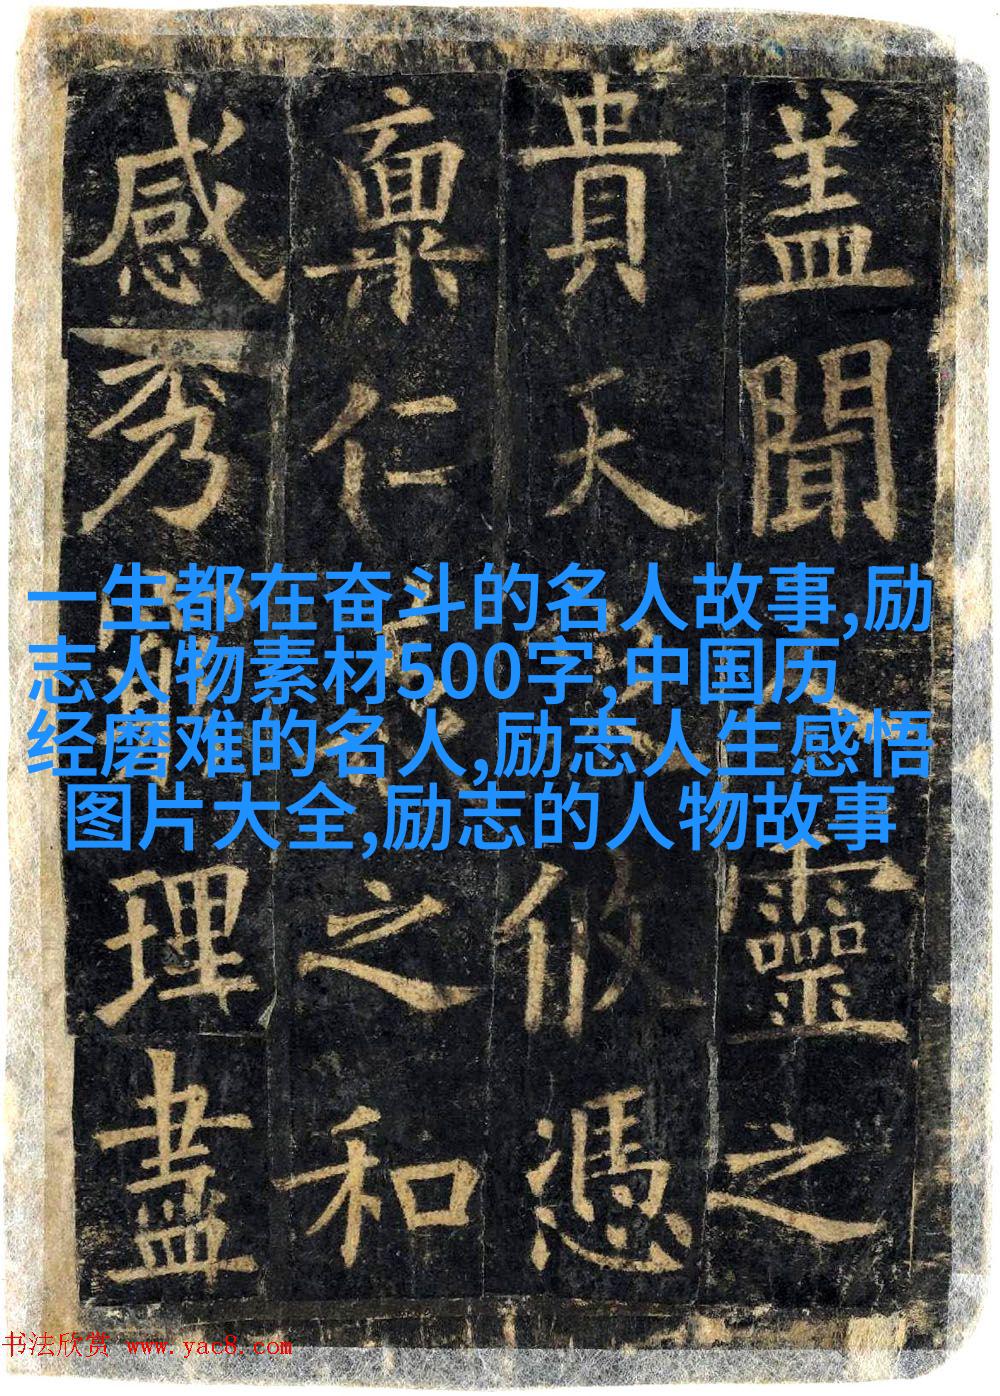 盖聞靈之
貴天攸憑
稟仁之和
感秀理盡
一生都在奋斗的名人故事,励
志人物素材500字,中国历
经磨难的名人,励志人生感悟
图片大全,励志的人物故事
书法欣赏 www.yac8.com